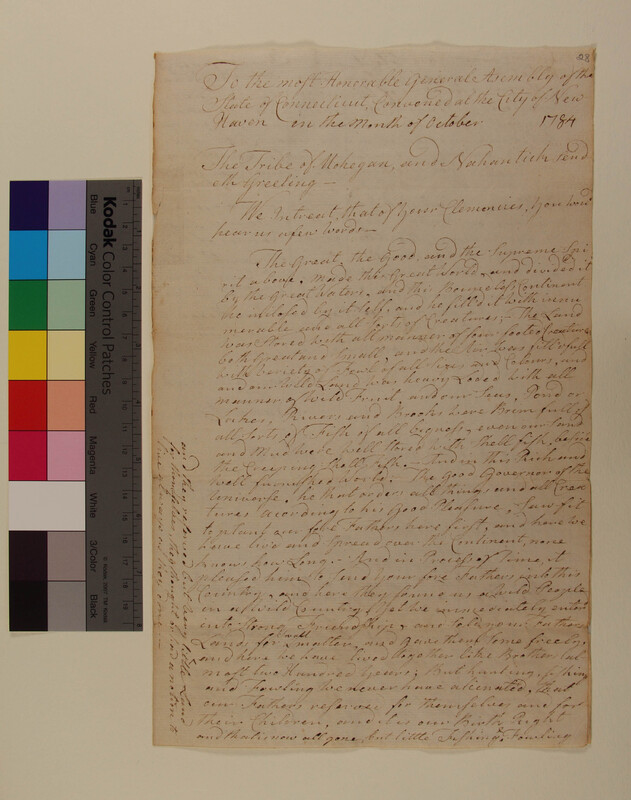 28
To the most Honorable Generale Assembly of the
State of Connecticut, Convoned at the City of New
Haven in the Month of October 1784
The Tribe of Mohegan, and Nahantick send
eth Greeting —
We Intreat, that of your Clemencies, you woud
hear us a few Words —
The Great, the Good, and the Supreme Spi
rit above, made this Great World, and divided it
by the Great Waters, and this Boundless Continent
he inclosed by it Self, and he fill'd it with innu
merable all Sorts of Creatures; The Land
was Stored with all manner of four footed Creatures
both Great and Small, and the Air was full
with Variety of Fowl of all Sizes and Colours, and
and our Wild Land was heavy Loded with all
manner of Wild Fruit, and our Seas, Pond or
Lakes, Rivers and Brooks have Been full of
all Sorts of Fish of all bigness, even our Sand
and Mud were well Stord with Shell Fish, besides
the Creeping Shell Fish. And in this Rich and
well furnished World. The Good Governor of the
Universe, he that orders all things and all Crea
tures according to his Good Pleasure, Saw fit
to plant our fore Fathers here first, and here we
have liv'd and Spread over the Continent, none
knows how Long. And in Process of Time, it
pleased him to Send your fore Fathers into this
Country, and here they found us a Wild People
in a Wild Country, Yet we immediately enterd
into Strong Friendship, and Sold your Fathers
Land, for Small matter, and Gave them Some freely
and here we have lived together like Brothers al
most two Hundred Years; But hunting, fishing
and Fowling we never have alienated, that
our Fathers reserved for themselves and for
their Children, and its our Birth Right
and that is now all gone, but little Fishing & Fowling
and they reserved but very little Land
for themselves, they thought it had no